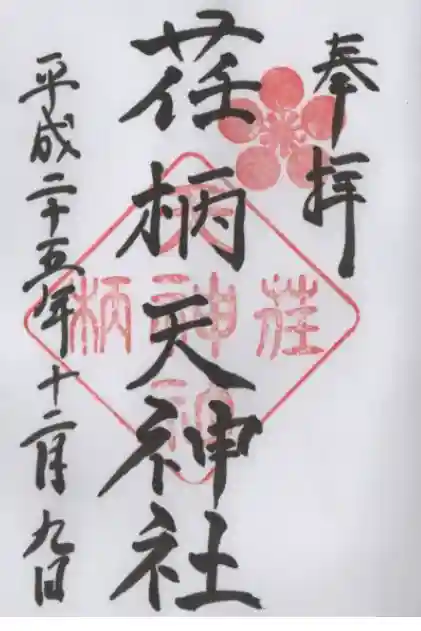 奉拝
荏柄天神社
平成二十五年十二月九日
荏
柄
天神社